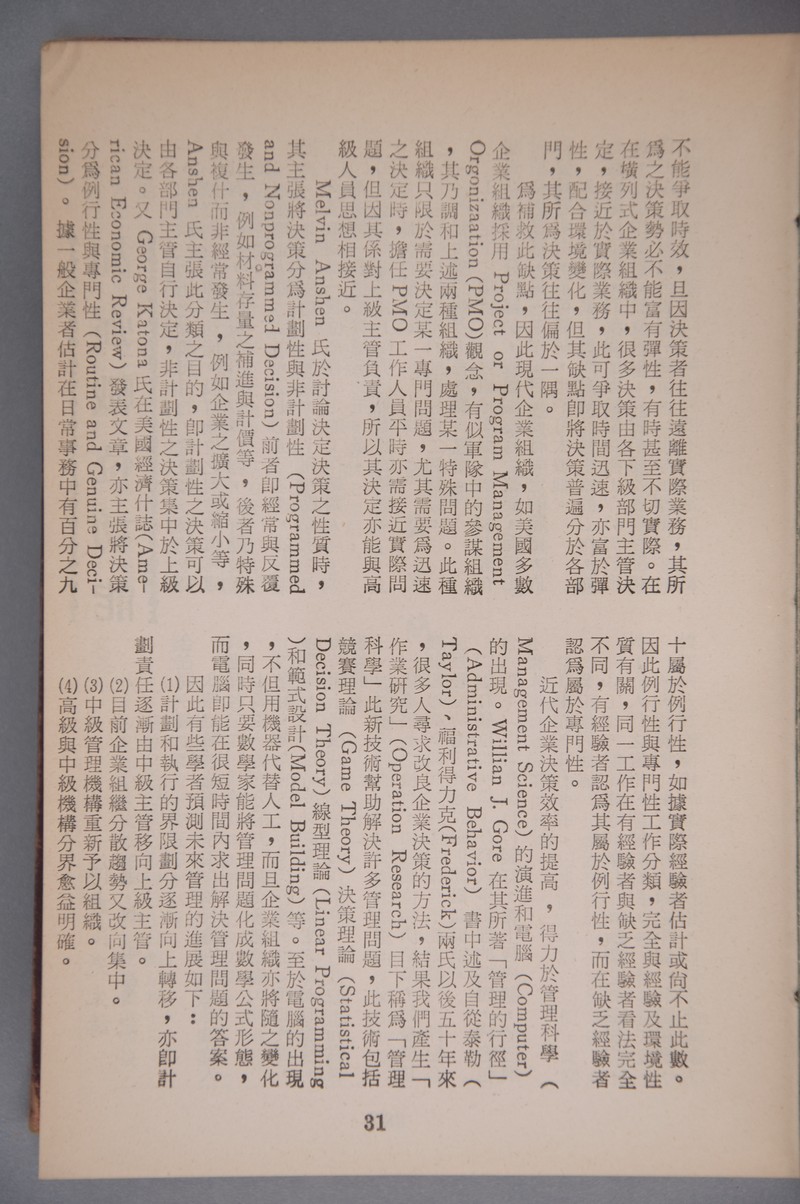 不能爭取時效，且因決策者往往遠離實際業務，其所
爲之決策勢必不能富有彈性，有時甚至不切實際。在
在橫列式企業組織中，很多決策由各下級部門主管決
定，接近於實際業務，此可爭取時間迅速，亦富於彈
性，配合環境變化，但其缺點即將決策普遍分於各部
門，其所爲決策往往偏於一隅。
爲補救此缺點，因此現代企業組織，如美國多數
企業組織採用 Project or Program Management
Orgonizaation (PMO)觀念，有似軍隊中的參謀組織
，其乃調和上述兩種組織，處理某一特殊問題。此種
組織只限於需要決定某一專門問題，尤其需要爲迅速
之決定時，擔任 PMO 工作人員平時亦需接近實際問
題，但因其係對上級主管負責，所以其決定亦能與高
級人員思想相接近。
Melvin Anshen 氏於討論決定決策之性質時，
其主張將決策分爲計劃性與非計劃性 (Programmed
and Nonprogrammed Decision) 前者即經常與反覆
發生，例如材料存量之補進與計價等，後者乃特殊
與複什而非經常發生，例如企業之擴大或縮小等，
Anshen 氏主張此分類之目的，即計劃性之決策可以
由各部門主管自行決定，非計劃性之決策集中於上級
決定。又 George Katona 氏在美國經濟什誌(Ame-
rican Economic Review) 發表文章，亦主張將決策
分爲例行性與專門性 (Routine and Genuine Deci-
sion)。據一般企業者估計在日常事務中有百分之九
十屬於例行性，如據實際經驗者估計或尙不止此數。
因此例行性與專門性工作分類，完全與經驗及環境性
質有關，同一工作在有經驗者與缺乏經驗者看法完全
不同，有經驗者認爲其屬於例行性，而在缺乏經驗者
認爲屬於專門性。
近代企業決策效率的提高，得力於管理科學 (
Management Science) 的演進和電腦 (Computer)
的出現。Willian J. Gore 在其所著「管理的行徑」
(Administrative Behavior) 書中述及自從泰勒 (
Taylor)、福利得力克(Frederick)兩氏以後五十年來
，很多人尋求改良企業決策的方法，結果我們產生「
作業研究」(Operation Research) 目下稱爲「管理
科學」此新技術幫助解決許多管理問題，此技術包括
競賽理論 (Game Theory) 決策理論 (Statistical
Decision Theory) 線型理論 (Linear Programming
)和範式設計(Model Building) 等。至於電腦的出現
，不但用機器代替人工，而且企業組織亦將隨之變化
，同時只要數學家能將管理問題化成數學公式形態，
而電腦即能在很短時間內求出解決管理問題的答案。
因此有些學者預測未來管理的進展如下：
(1)計劃和執行的界限劃分逐漸向上轉移，亦即計
劃責任逐漸由中級主管移向上級主管。
(2)目前企業組織分散趨勢又改向集中。
(3)中級管理機構重新予以組織。
(4)高級與中級機構分界愈益明確。
31